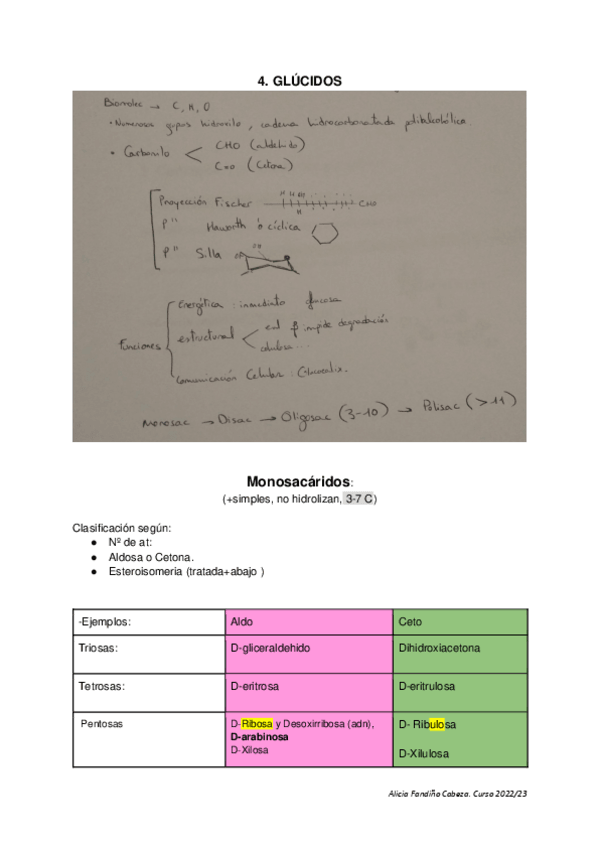 4. GLÚCIDOS
Biomolec → C, H, O
• Numerosos grupos hidroxilo, cadena hidrocarbonatada polialcohólica.
• Carbonilo < CHO (aldehído)
C=O (Cetona)
Proyección Fischer CHO
P" Haworth ó cíclica
P" Silla
Funciones
Energética: inmediato glucosa
estructural < enl β impide degradación
celulosa...
Comunicación Celular: Glucocalix.
Monosac → Disac → Oligosac (3-10) → Polisac (>11)
Monosacáridos:
(+simples, no hidrolizan, 3-7 C)
Clasificación según:
● Nº de at:
● Aldosa o Cetona.
● Esteroisomeria (tratada+abajo )
-Ejemplos: Aldo Ceto
Triosas: D-gliceraldehido Dihidroxiacetona
Tetrosas: D-eritrosa D-eritrulosa
Pentosas D-Ribosa y Desoxirribosa (adn), D- Ribulosa
D-arabinosa
D-Xilosa D-Xilulosa
Alicia Fandiño Cabeza. Curso 2022/23